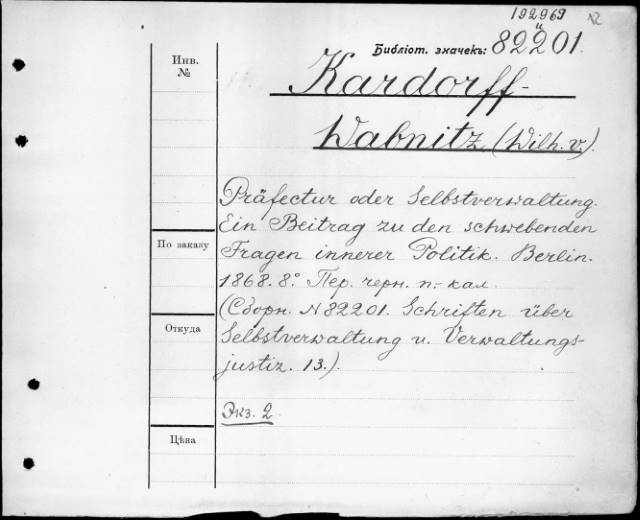 192969
и
Библіот. значекъ: 82201.
Инв.
№
Kardorff-
Wabnitz (Wilh. v.).
Präfectur oder Selbstverwaltung.
Ein Beitrag zu den schwebenden
По заказу
Fragen innerer Politik. Berlin.
1868. 8° Пер. черн. п.-кал.
(Сборн. N 82201. Schriften über
Откуда
Selbstverwaltung u. Verwaltungs-
justiz. 13.).
Экз. 2.
Цѣна